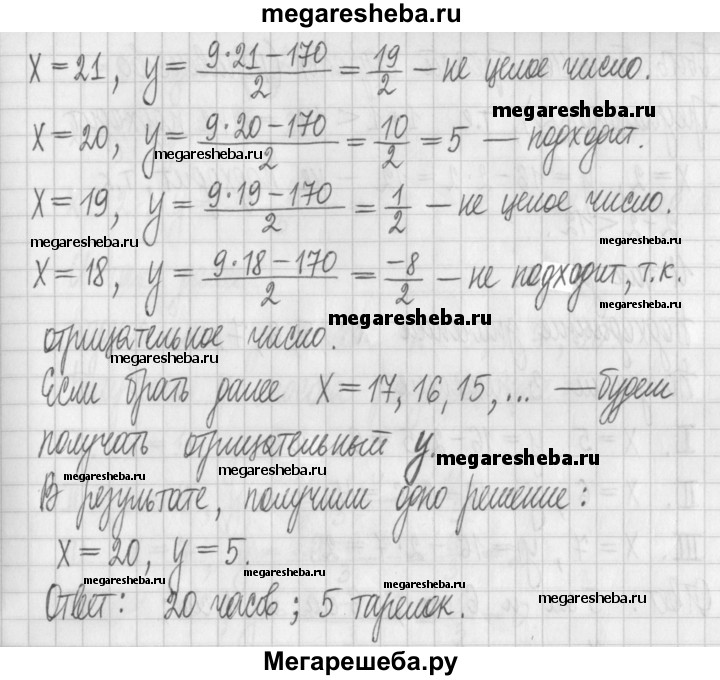 megaresheba.ru
X = 21, y = (9·21 − 170)/2 = 19/2 — не целое число.
megaresheba.ru
X = 20, y = (9·20 − 170)/2 = 10/2 = 5 — подходит.
megaresheba.ru
X = 19, y = (9·19 − 170)/2 = 1/2 — не целое число.
megaresheba.ru
megaresheba.ru
X = 18, y = (9·18 − 170)/2 = −8/2 — не подходит, т.к.
megaresheba.ru
отрицательное число.
megaresheba.ru
Если брать далее X = 17, 16, 15, ... — будем
получать отрицательный y.
megaresheba.ru
megaresheba.ru
megaresheba.ru
В результате, получили одно решение:
X = 20, y = 5.
megaresheba.ru
megaresheba.ru
megaresheba.ru
Ответ: 20 часов; 5 тарелок.
megaresheba.ru
Мегарешеба.ру